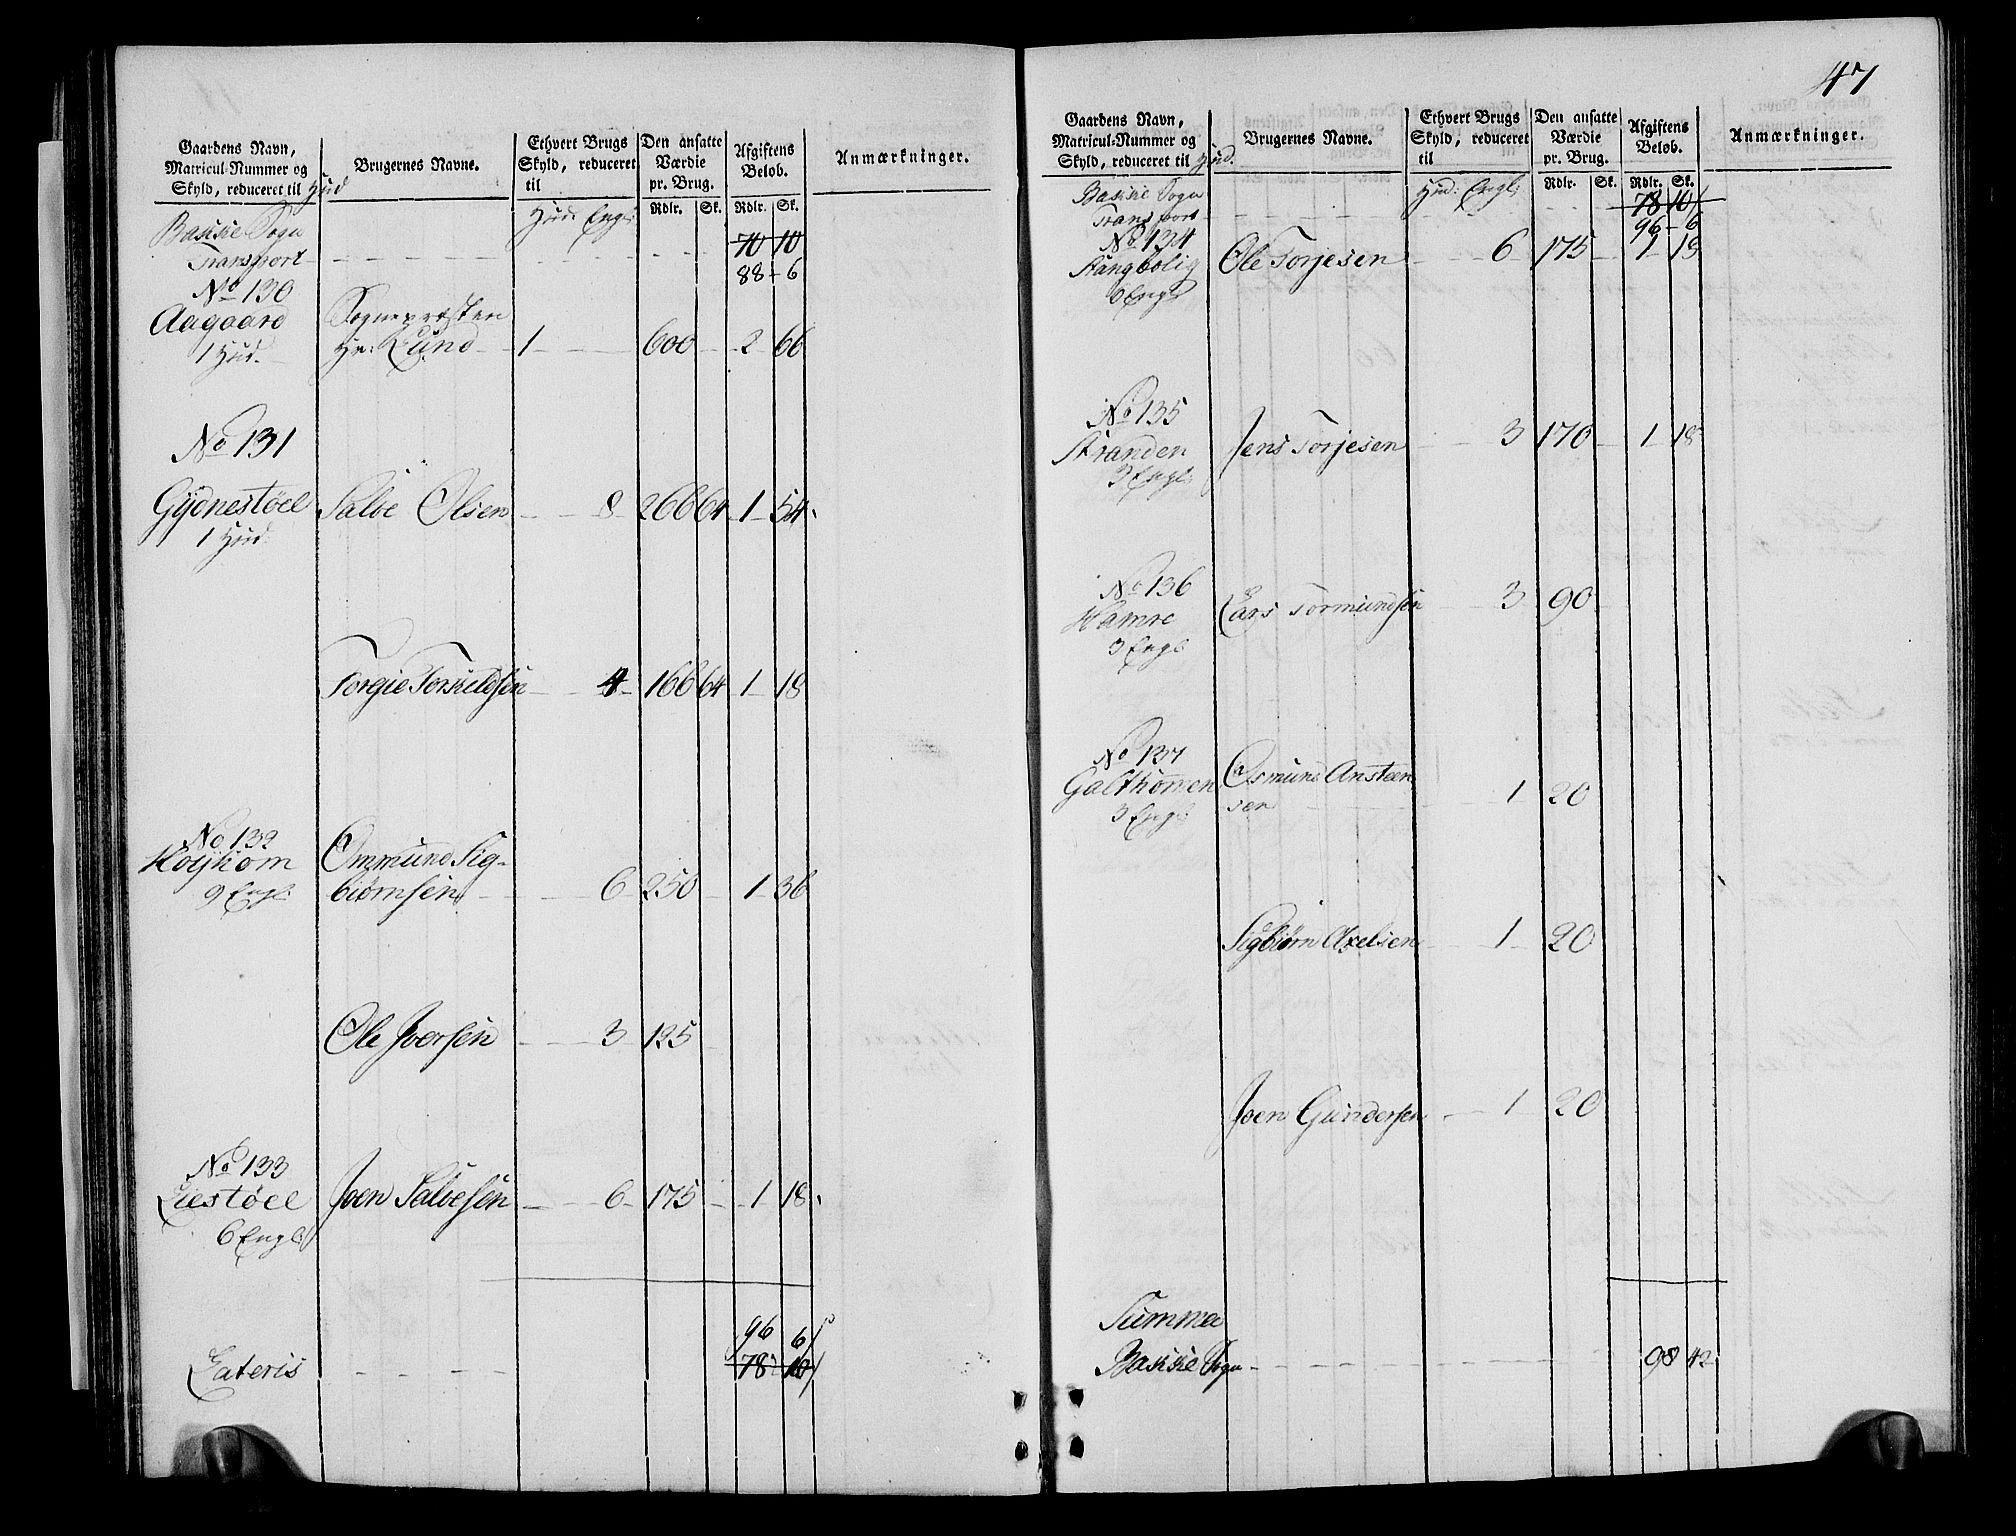 Gaardens Navn,
Matricul-Nummer og
Skyld, reduceret til Hud
Brugernes Navne.
Ethvert Brugs
Skyld, reduceret
til
Den ansatte
Værdie
pr. Brug.
Afgiftens
Beløb.
Anmærkninger.
Hud: Engl:
Rdlr. Sk. Rdlr. Sk.
Bakke Sogn
Transport 70 10
88 - 6
No 130
Aagaard Sognepræsten
1 Hud. Hr: Lund 1 600 2 66
No 131
Gydnestøel Salve Olsen 8 266 64 1 54
1 Hud.
Torgie Torkeldsen 4 166 64 1 18
No 132
Høykom Ommund Sig-
9 Engl: biørnsen 6 250 1 36
Ole Iversen 3 125
No 133
Liestøel Joen Salvesen 6 175 1 18
6 Engl:
96 6
Lateris 78 10
47
Gaardens Navn,
Matricul-Nummer og
Skyld, reduceret til Hud.
Brugernes Navne.
Ethvert Brugs
Skyld, reduceret
til
Den ansatte
Værdie
pr. Brug.
Afgiftens
Beløb.
Anmærkninger.
Hud: Engl:
Rdlr. Sk. Rdlr. Sk.
Bakke Sogn
Transport 78 10
96 - 6
No 134
Stangbolig Ole Torjesen 6 175 1 18
6 Engl
No 135
Stranden Jens Torjesen 3 170 1 18
3 Engl:
No 136
Hamre Lars Tormundsen 3 90
3 Engl:
No 137
Galthommen Osmund Ansteen
3 Engl: sen 1 20
Sigbiørn Axelsen 1 20
Joen Gundersen 1 20
Summa
Bakke Sogn 98 42